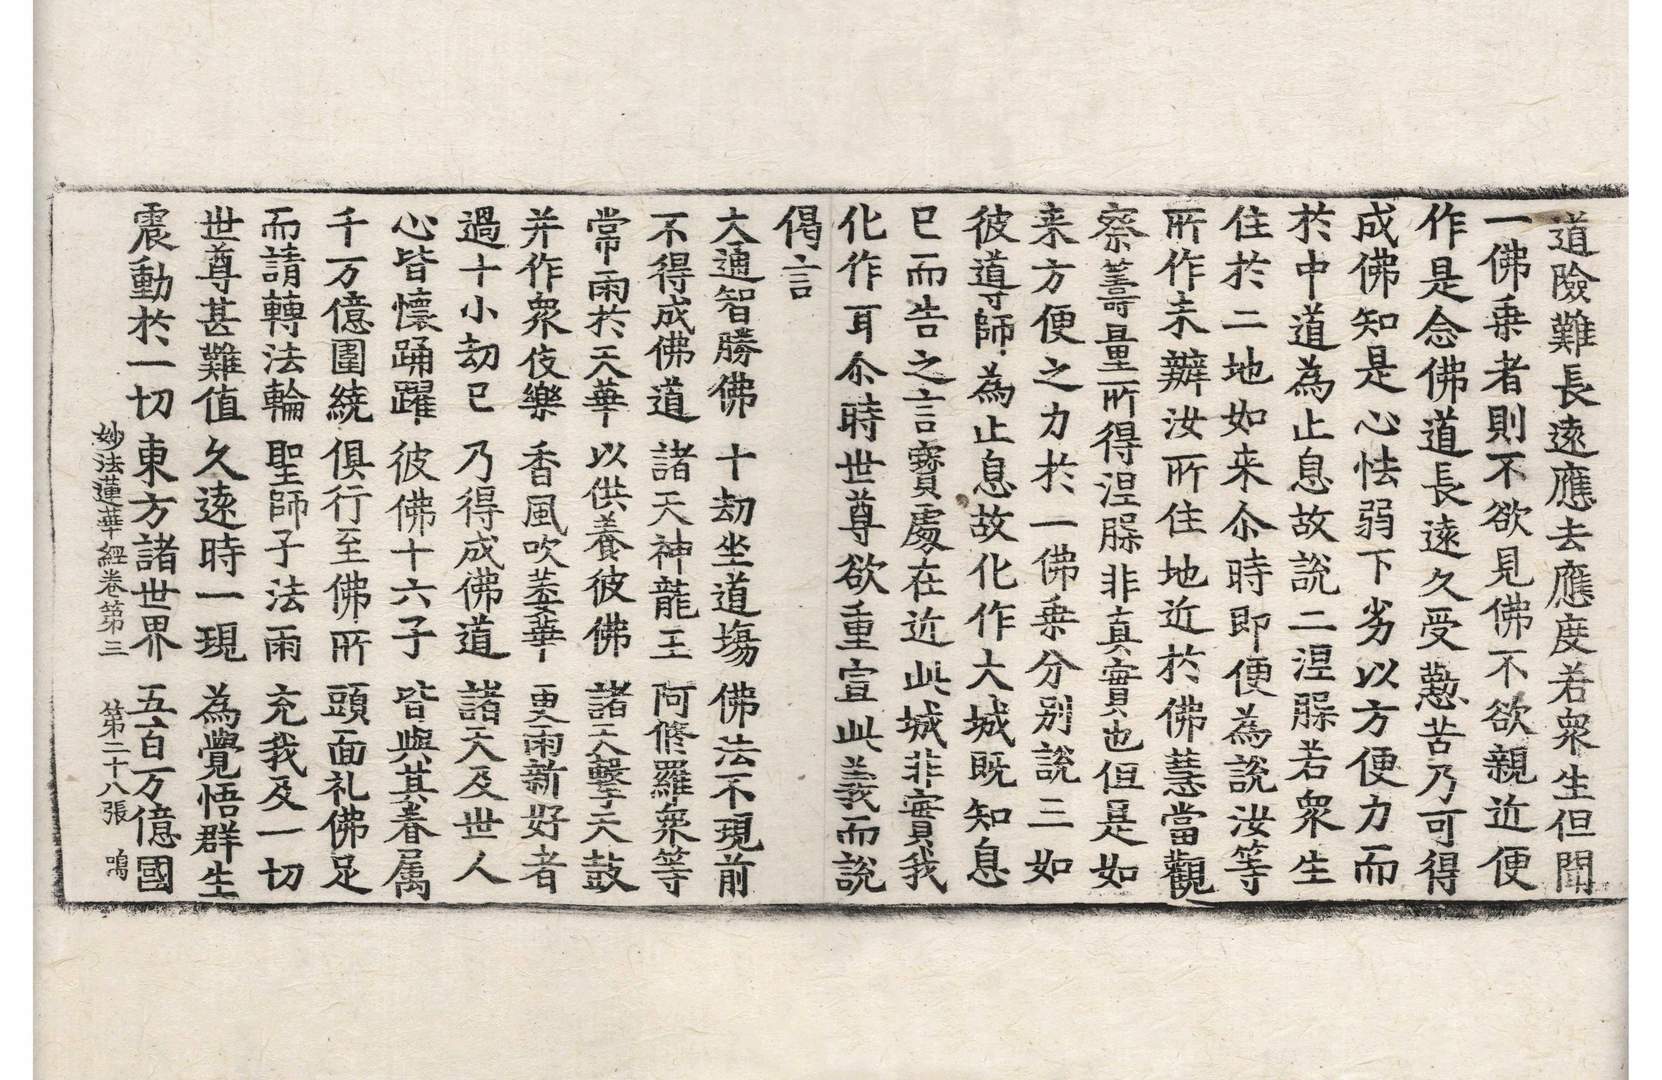 道險難長遠應去應度若衆生但聞
一佛乗者則不欲見佛不欲親近便
作是念佛道長遠久受懃苦乃可得
成佛知是心怯弱下劣以方便力而
於中道為止息故說二涅槃若衆生
住於二地如来尒時即便為說汝等
所作未辦汝所住地近於佛慧當觀
察籌量所得涅槃非真實也但是如
来方便之力於一佛乗分別說三如
彼導師為止息故化作大城既知息
已而告之言寶處在近此城非實我
化作耳尒時世尊欲重宣此義而說
偈言
大通智勝佛 十劫坐道場 佛法不現前
不得成佛道 諸天神龍王 阿脩羅衆等
常雨於天華 以供養彼佛 諸天擊天鼓
并作衆伎樂 香風吹萎華 更雨新好者
過十小劫已 乃得成佛道 諸天及世人
心皆懷踊躍 彼佛十六子 皆與其眷属
千万億圍繞 俱行至佛所 頭面礼佛足
而請轉法輪 聖師子法雨 充我及一切
世尊甚難值 久遠時一現 為覺悟群生
震動於一切 東方諸世界 五百万億國
妙法蓮華經卷第三 第二十八張 鳴